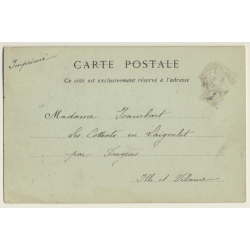 CARTE POSTALE
Ce côté est exclusivement réservé à l'adresse
Imprimé
Madame Isambart
Les Cottets en Laignelet
par Fougères
Ille et Vilaine